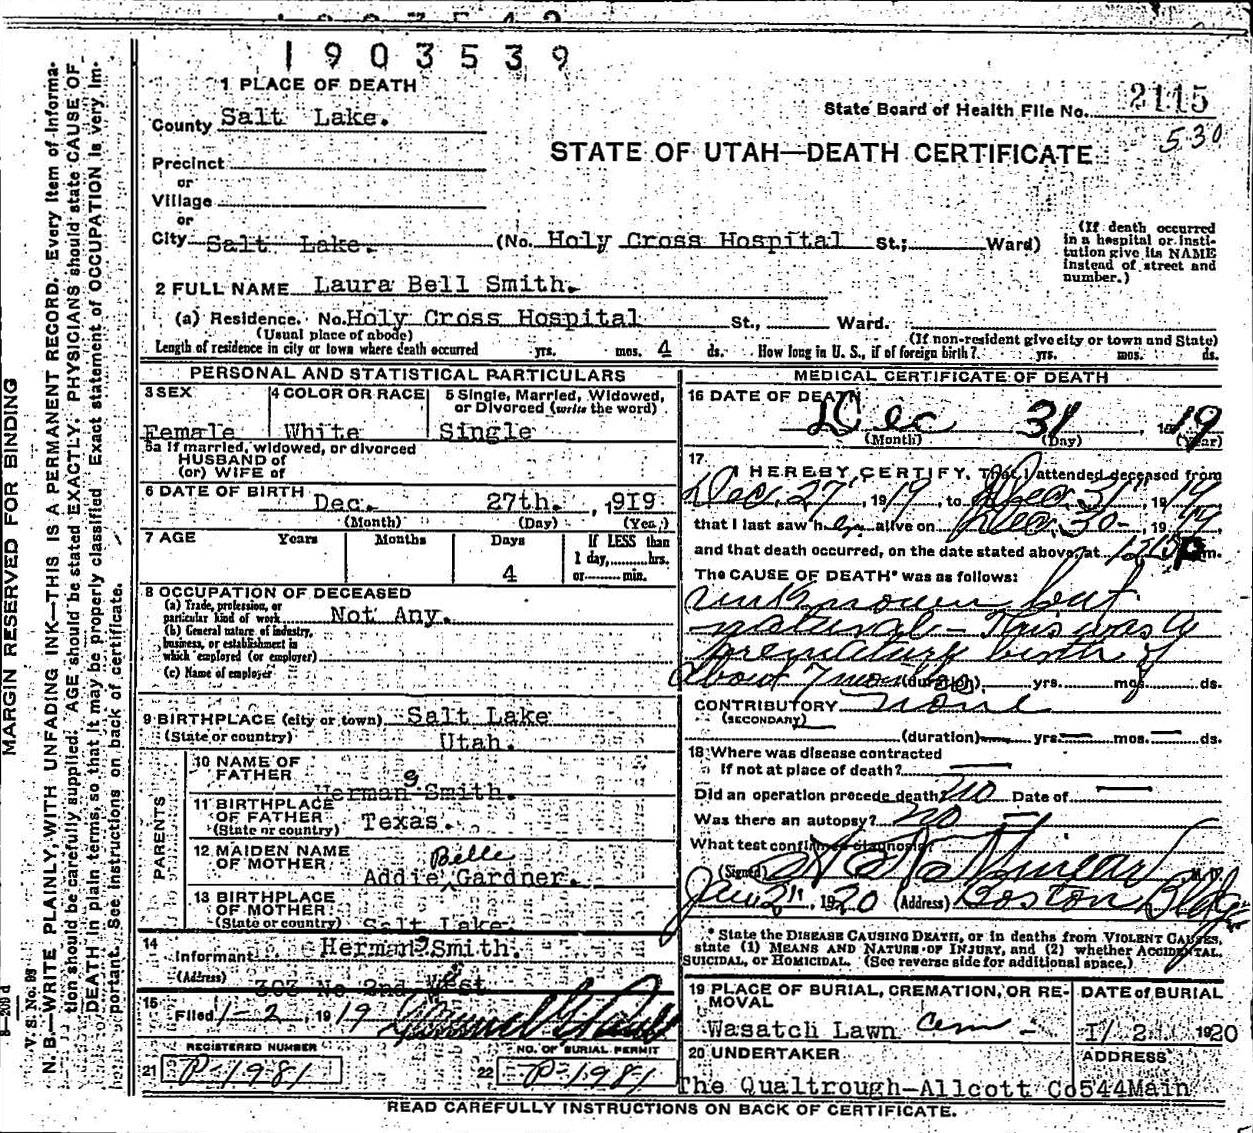 1903539
1 PLACE OF DEATH
State Board of Health File No. 2115
530
County Salt Lake.
STATE OF UTAH—DEATH CERTIFICATE
Precinct
or
Village
or
City Salt Lake. (No. Holy Cross Hospital St.; Ward)
(If death occurred
in a hospital or insti-
tution give its NAME
instead of street and
number.)
2 FULL NAME Laura Bell Smith.
(a) Residence. No. Holy Cross Hospital St., Ward.
(Usual place of abode) (If non-resident give city or town and State)
Length of residence in city or town where death occurred yrs. mos. 4 ds. How long in U. S., if of foreign birth? yrs. mos. ds.
PERSONAL AND STATISTICAL PARTICULARS
3 SEX 4 COLOR OR RACE 5 Single, Married, Widowed,
or Divorced (write the word)
Female White Single
5a If married, widowed, or divorced
HUSBAND of
(or) WIFE of
6 DATE OF BIRTH Dec. 27th. , 1919
(Month) (Day) (Year)
7 AGE Years Months Days If LESS than
1 day,........hrs.
or........min.
4
8 OCCUPATION OF DECEASED
(a) Trade, profession, or
particular kind of work Not Any.
(b) General nature of industry,
business, or establishment in
which employed (or employer)
(c) Name of employer
9 BIRTHPLACE (city or town) Salt Lake
(State or country) Utah.
PARENTS
10 NAME OF
FATHER Herman G Smith.
11 BIRTHPLACE
OF FATHER
(State or country) Texas.
12 MAIDEN NAME
OF MOTHER Addie Belle Gardner.
13 BIRTHPLACE
OF MOTHER
(State or country) Salt Lake.
14
Informant Herman G Smith.
(Address)
303 No 2nd West
15
Filed 1-2, 1919
REGISTERED NUMBER NO. OF BURIAL PERMIT
21 P-1981 22 P-1981
MEDICAL CERTIFICATE OF DEATH
16 DATE OF DEATH
Dec 31 , 1919
(Month) (Day) (Year)
17
I HEREBY CERTIFY, That I attended deceased from
Dec. 27, 1919, to Dec. 31, 1919
that I last saw her alive on Dec. 30-, 1919
and that death occurred, on the date stated above, at 1215 P m.
The CAUSE OF DEATH* was as follows:
unknown but
natural - This was a
premature birth of
about 7 months (duration) yrs. mos. ds.
CONTRIBUTORY none
(SECONDARY)
(duration) — yrs. — mos. — ds.
18 Where was disease contracted
If not at place of death? —
Did an operation precede death? no Date of —
Was there an autopsy? no
What test confirmed diagnosis? —
(Signed) M. D.
Jan 2", 1920 (Address) Boston Bldg
* State the DISEASE CAUSING DEATH, or in deaths from VIOLENT CAUSES,
state (1) MEANS AND NATURE OF INJURY, and (2) whether ACCIDENTAL,
SUICIDAL, or HOMICIDAL. (See reverse side for additional space.)
19 PLACE OF BURIAL, CREMATION, OR RE-
MOVAL DATE of BURIAL
Wasatch Lawn Cem - 1/2 1920
20 UNDERTAKER ADDRESS
The Qualtrough-Allcott Co 544 Main
READ CAREFULLY INSTRUCTIONS ON BACK OF CERTIFICATE.
MARGIN RESERVED FOR BINDING
V. S. No. 89
N. B.—WRITE PLAINLY, WITH UNFADING INK—THIS IS A PERMANENT RECORD. Every item of informa-
tion should be carefully supplied. AGE should be stated EXACTLY. PHYSICIANS should state CAUSE OF
DEATH in plain terms, so that it may be properly classified. Exact statement of OCCUPATION is very im-
portant. See instructions on back of certificate.